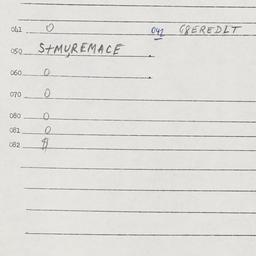 041 0 042 GBEREDLT
050 StMUREMACE
060 0
070 0
080 0
081 0
082